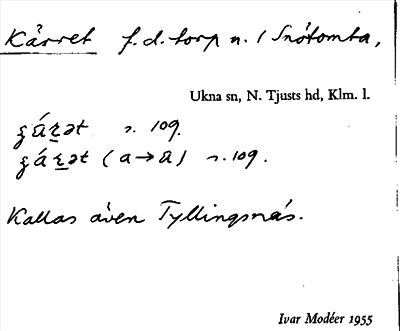 Kärret f.d. torp u. / Snötomta,
Ukna sn, N. Tjusts hd, Klm. l.
s. 109.
(a→a) s. 109.
Kallas även Tyllingsnäs.
Ivar Modéer 1955